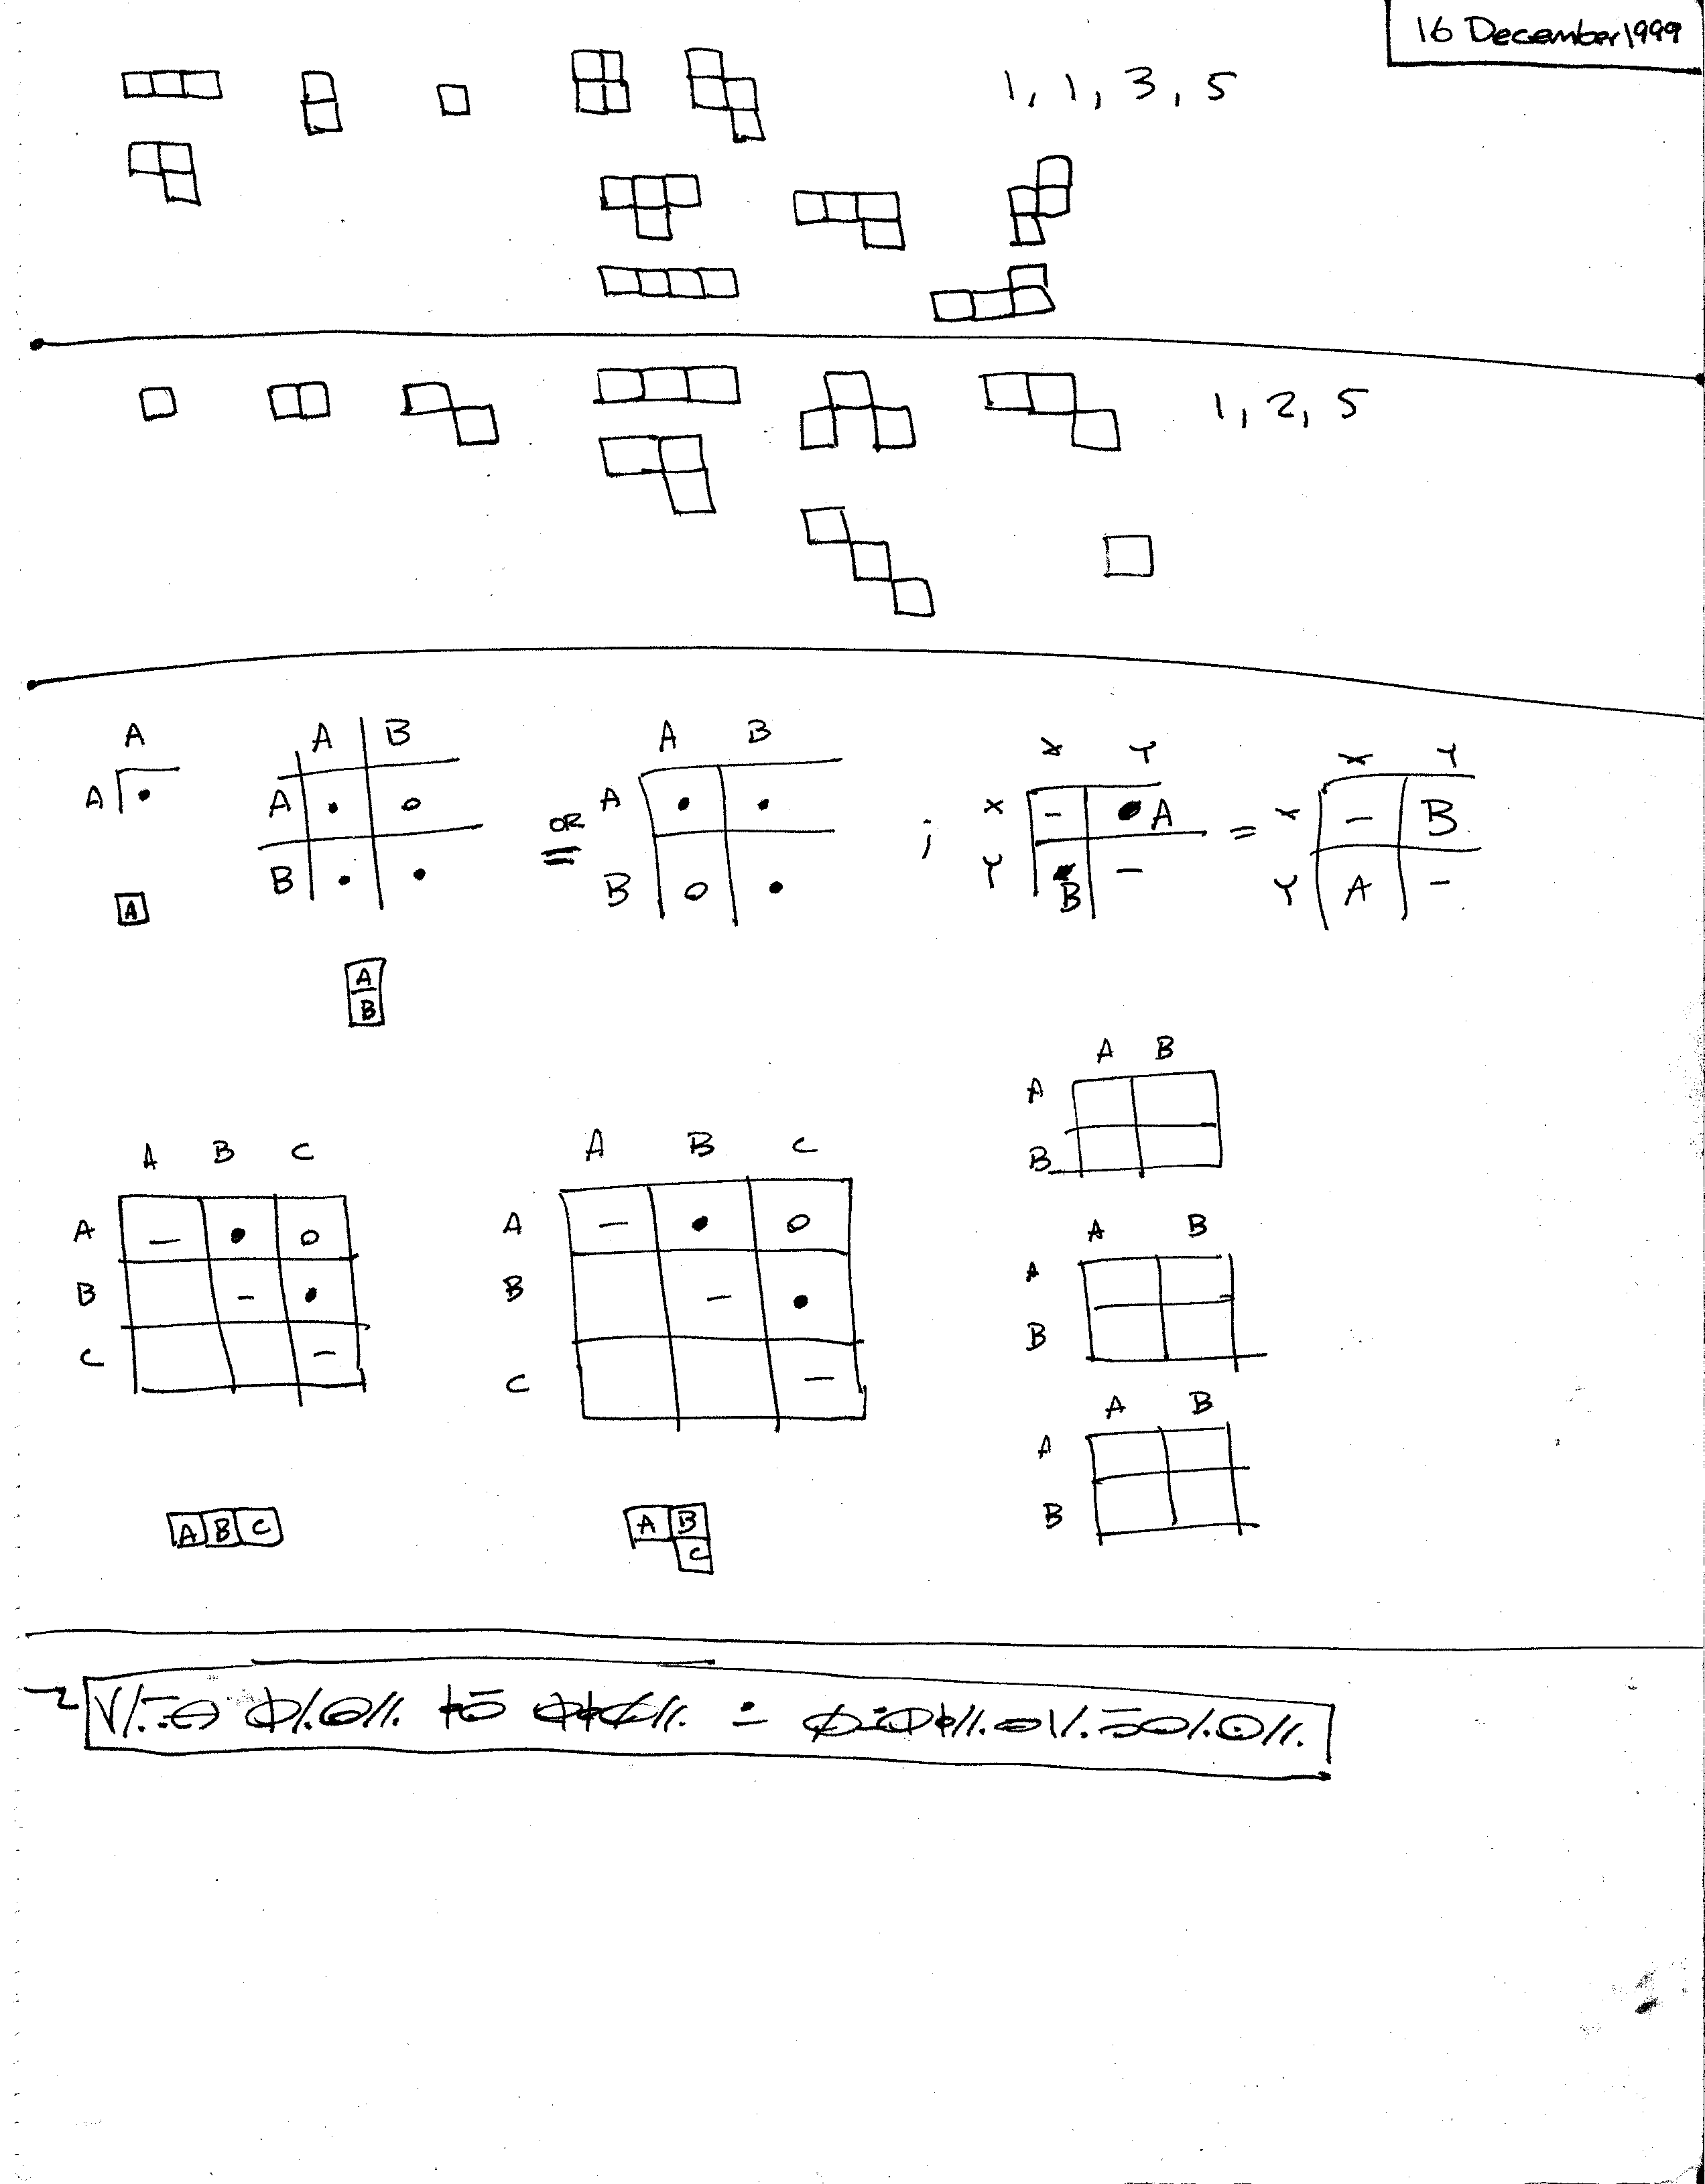 16 December 1999
1, 1, 3, 5
1, 2, 5
A
A
A B
A
B
OR
A B
A
B
;
X Y
X - A
Y B -
=
X Y
X - B
Y A -
A
A
B
A B
A
B
A B C
A -
B -
C -
A B C
A -
B -
C -
A B
A
B
A B
A
B
A B C
A B
C